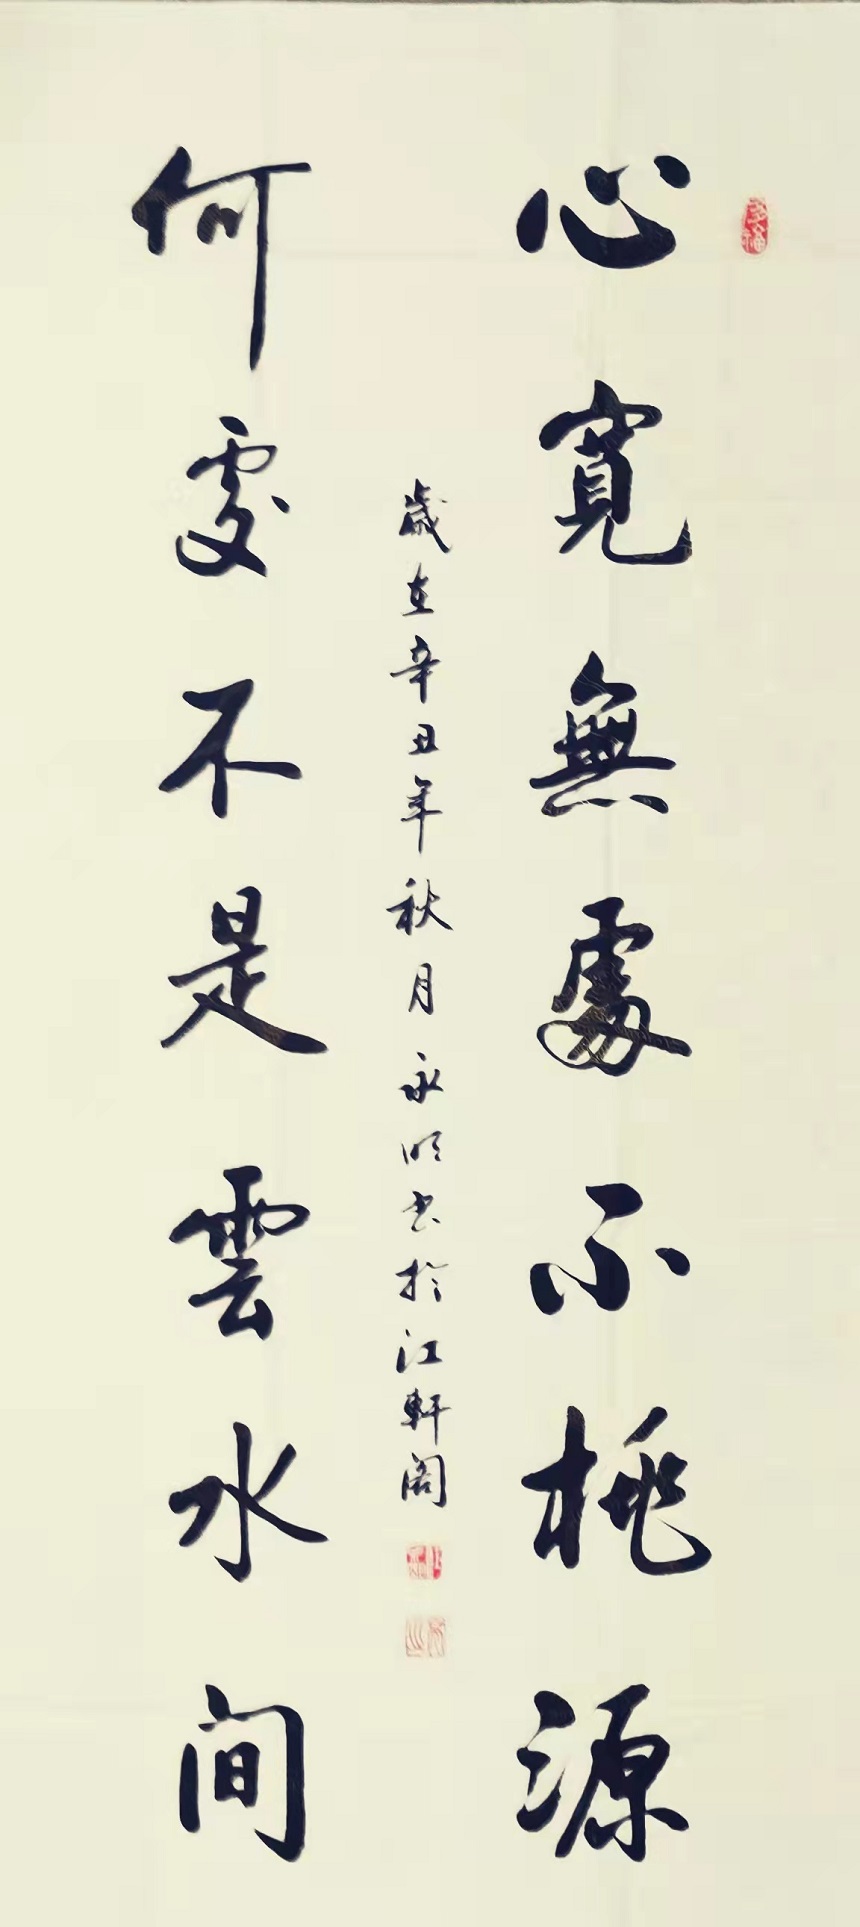 心寬無處不桃源
何處不是雲水间
歲在辛丑年秋月永明书於江軒阁
多福